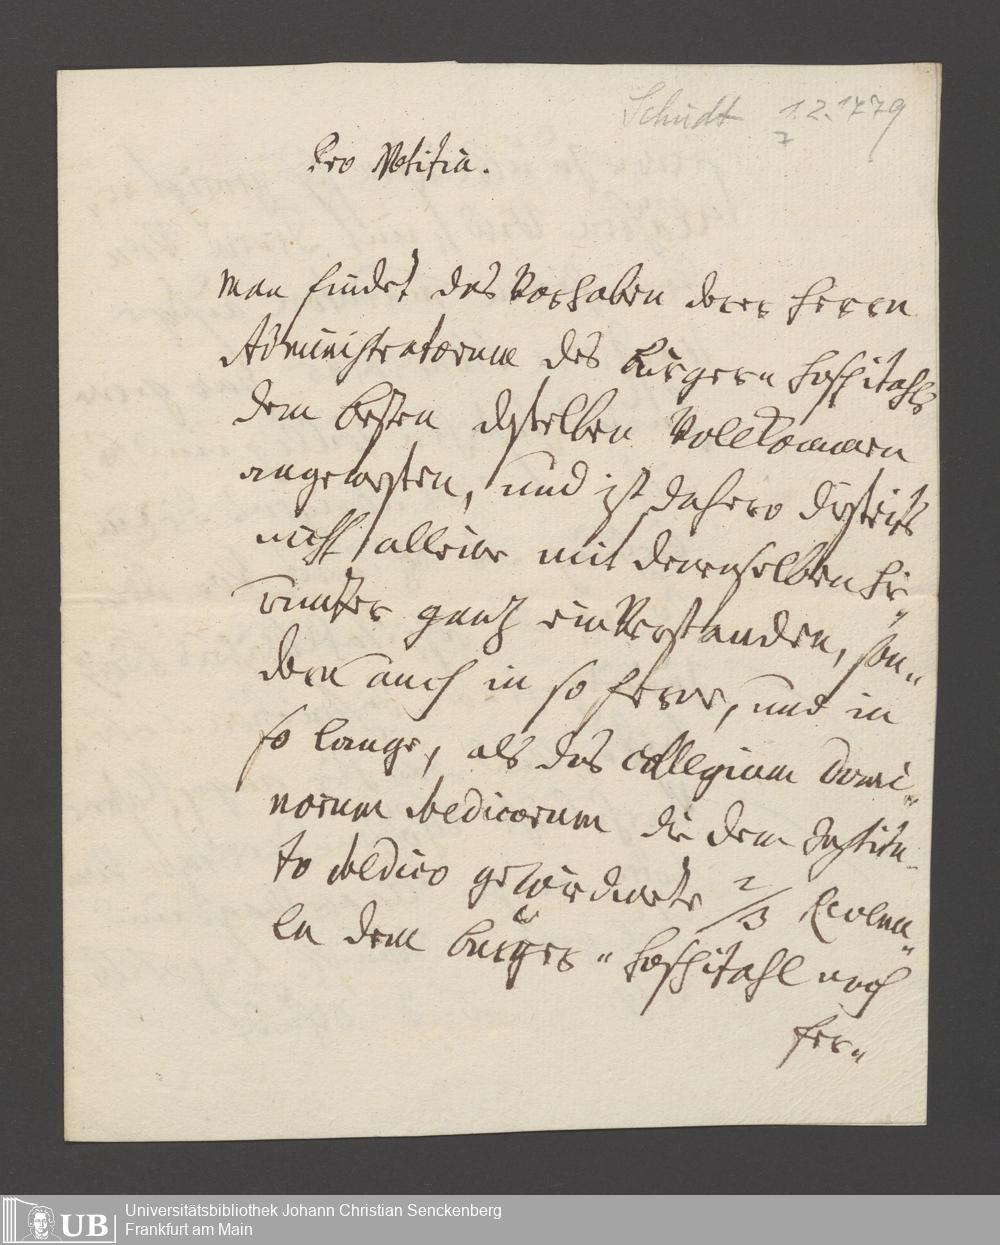 Schudt 1.2.1779
7
Pro Notitia.
Man findet das Vorhaben derer Herrn
Administratorum des Burgern Hospitahls
dem besten desselben Vollkommen
angemessen, und ist dahero disseits
nicht alleine mit denenselben hi-
runter gantz einverstanden, son-
dern auch in so ferne, und in
so lange, als das Collegium Domi-
norum Medicorum die dem Institu-
to Medico gewidmete 2/3
len dem Burger-Hospitahl noch
fer-
UB
Universitätsbibliothek Johann Christian Senckenberg
Frankfurt am Main